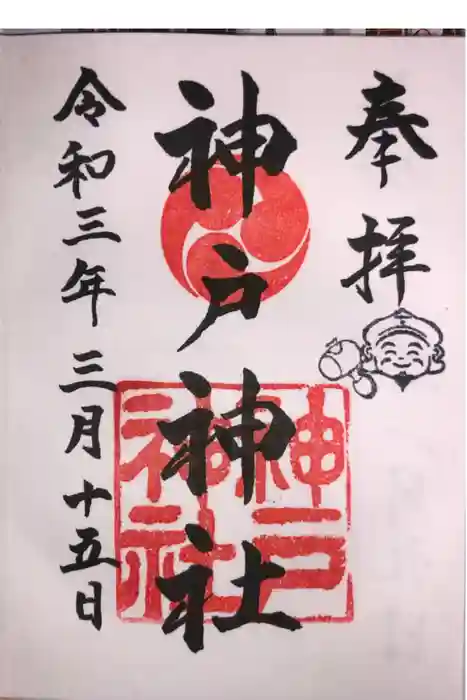 奉拝
神戸神社
神戸
神社
令和三年三月十五日